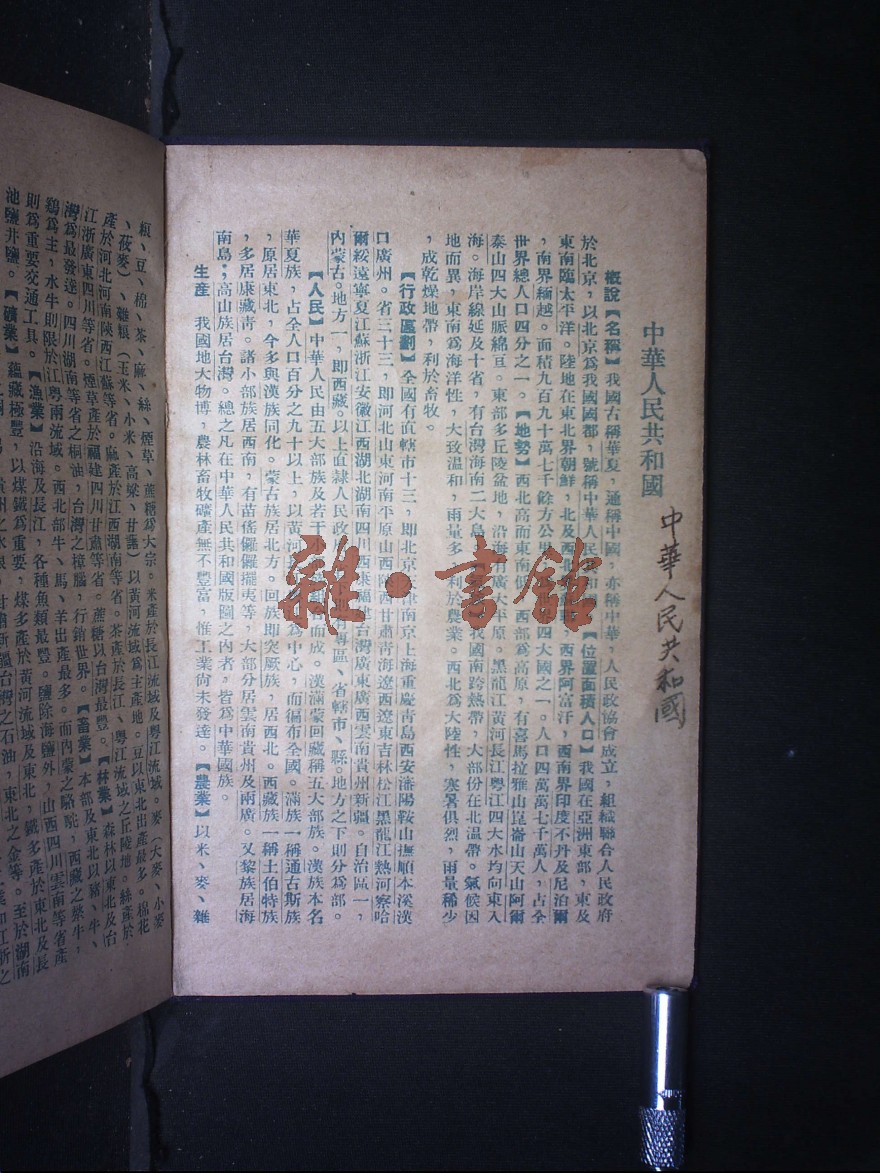 中華人民共和國
中華人民共和國
概說【名稱】我國古稱華夏,通稱中國,亦稱中華,人民政協會成立,組織聯合人民政府
於北京,以北京為我國國都,號稱中華人民共和國。【位置面積人口】我國在亞洲東部,東及
東南臨太平洋。陸地在東北界朝鮮,北及西北界,西界阿富汗,西南界印度不丹及尼泊爾
,南界緬越。面積九百九十萬七千餘方公里,四大國之一。人口四萬萬七千萬人,占全
世界總人口四分之一。【地勢】西北高而東南低。西部為高原,有喜馬拉雅山崑崙山天山阿爾
泰山四大山脈綿亘。東部多丘陵盆地,沿海廣大平原。黑龍江黃河長江粵江四大水均向東入
海。海岸線延及十省,有台灣海南二大島。我國南跨熱帶,大部份在北溫帶。氣候因
地而異,東南為海洋性,大致溫和,雨量多,利於農業。西北為大陸性,寒暑俱烈,雨量稀少
,成乾燥地帶,利於畜牧。
【行政區劃】全國有直轄市十三,即北京天津南京上海重慶青島西安瀋陽鞍山撫順本溪漢
口廣州。省三十三,即河北山東河南平原山西陝西甘肅青海遼西遼東吉林松江黑龍江熱河察哈
爾綏遠寧夏江蘇浙江安徽江西湖北湖南四川西康福建台灣廣東廣西雲南貴州新疆。自治區一,
內蒙古。地方一,即西藏。以上直隸人民政府專區、省轄市、縣。地方之下則分為部。
【人民】中華人民由五大部族及若干小而成。漢滿蒙回藏稱五大部族。漢族本名
華夏族,占全人口百分之九十以上,以黃河為中心,而徧布全國。滿族一稱通古斯族
,原居東北,今多與漢族同化。蒙古族居北方。回族即突厥族,居西北。西藏族一稱土伯特族
,多居康藏青。諸小部族居西南,有苗傜玀玀擺夷等,大部分居雲南貴州及兩廣。又黎族居海
南島,高山族居台灣。總之凡在中華人民共和國版圖之內者,皆為中華國族。
生產 我國地大物博,農林畜牧礦產無不豐富,惟工業尚未發達。【農業】以米、麥、雜
糧、豆、棉、茶、麻、絲、煙草、蔗糖為大宗。米產於長江流域及粵江流域。麥、大麥、小麥
、莜麥)、雜糧(玉米、小米、高粱、甘藷)以黃河流域為主產地。豆以東北出產最多。棉花
產於河北河南陝西江蘇等省。麻產於江西湖南等省。茶產於長江、粵江流域之丘陵地。絲產於
江浙廣東四川等省。煙草產於福建四川甘肅等省。蔗糖以台灣最豐。【林業】森林以東北及台
灣為最發達。四川湖南等省之桐油,台灣之樟腦,行銷世界。【畜業】本部及東北以豬、牛、
鷄為主,水牛則限於江粵兩流域。西北部牛、馬、羊出產最多。而內蒙之駱駝,西藏之犛牛,
則為重要交通工具。【漁業】沿海及長江,各種魚類最豐。鹽除海鹽外,山西四川雲南等省產
池鹽井鹽。【礦業】蘊藏極豐,以煤鐵為重要,煤多產於黃河流域及東北,鐵多產於東北及長
貴州之水銀,甘肅新疆台灣之石油,東北之金等。至於湖南
雜·書館